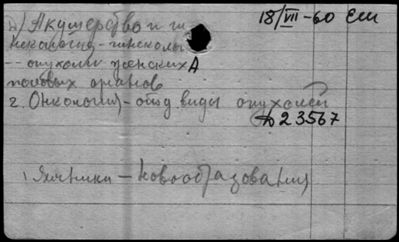 1) Акушерство и ги
некология - гинеколы
-- опухоли женских А
половых органов
2. Онкология - отд виды опухолей
18/VII-60 Еш
Д23567
1. Яичники - новообразования